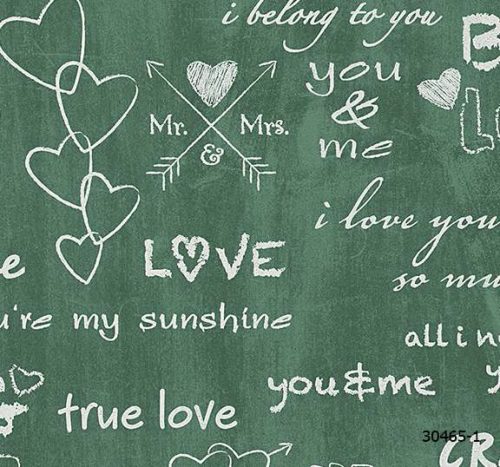 i belong to you
you
&
me
Mr. & Mrs.
i love you
so mu
LOVE
e
u're my sunshine
all i n
you&me
true love
30465-1